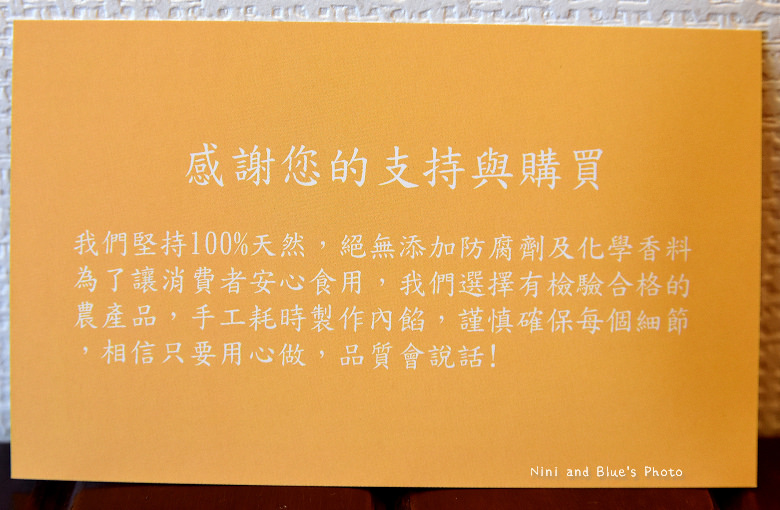 感謝您的支持與購買
我們堅持100%天然，絕無添加防腐劑及化學香料
為了讓消費者安心食用，我們選擇有檢驗合格的
農產品，手工耗時製作內餡，謹慎確保每個細節
，相信只要用心做，品質會說話!
Nini and Blue's Photo